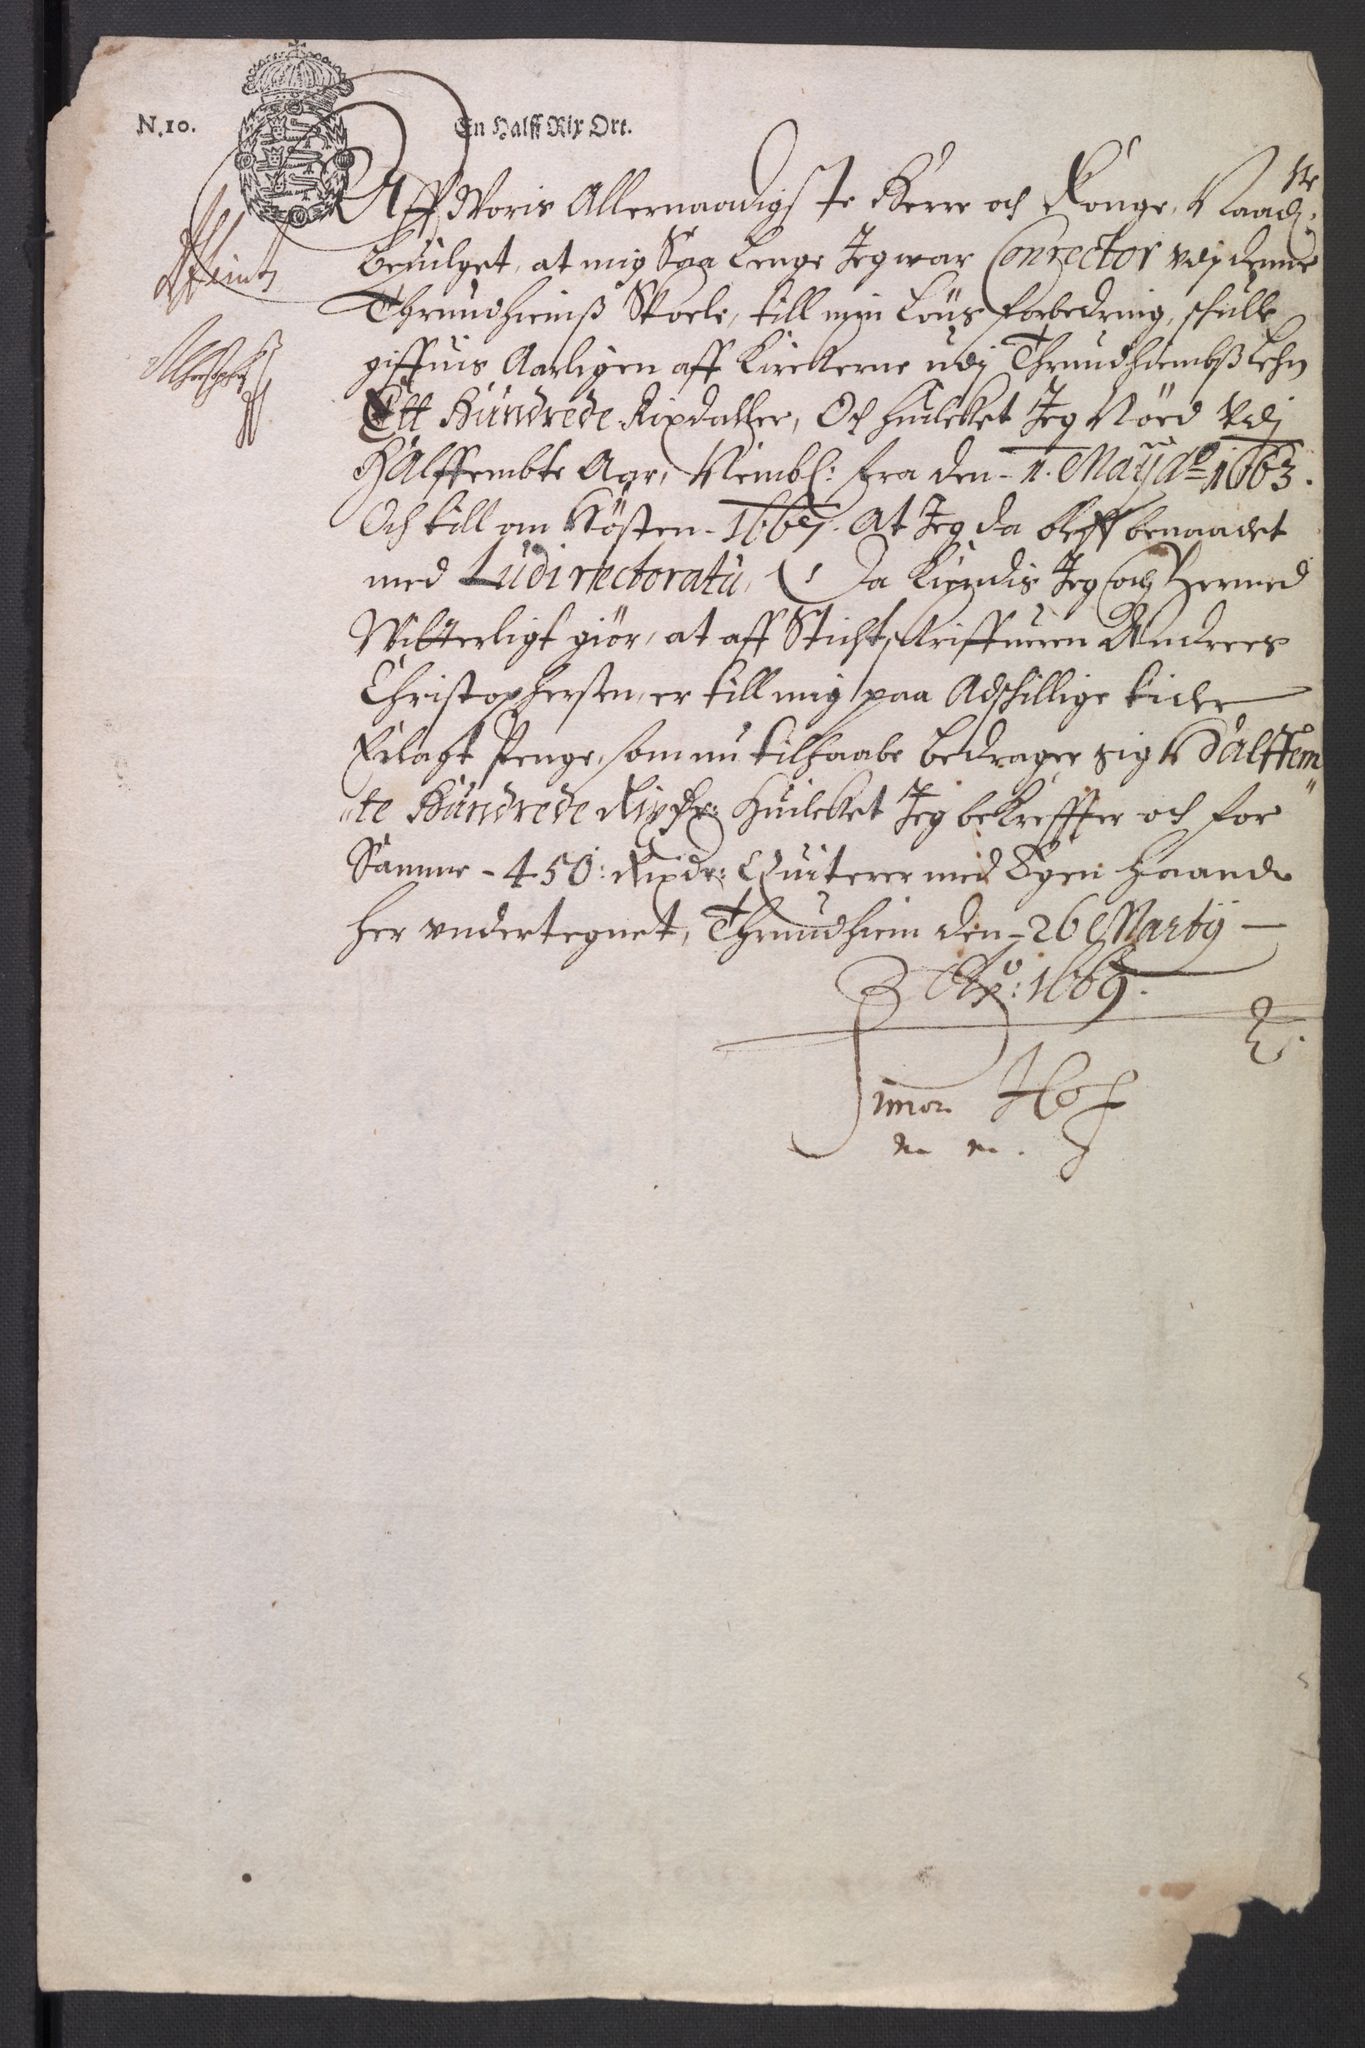 N. 10.
En Halff Rix Ort.
Aff Woris Allernaadigste Herre och Konge, Naadste
beuilget, at mig Saa Lenge Jeg war Conrector vdj denne
Thrundhiemß Skoele, till min Löns forbedring, skulle
giffuis Aarligen aff Kirckerne udj Thrundhiembß Lehn
Ett Hundrede Rixdaller, Och huilcket Jeg Nöed Vdj
Halffembte Aar, Nembl: fra den 1. Maij Ao 1663.
Och till om Hösten 1667. At Jeg da bleff benaadet
med Ludi rectoratu, Da Kiendis Jeg och Hermed
Witterligt giör, at aff Stichtskriffueren Andrees
Christophersen, er till mig paa Adschillige tider
Erlagt Penge, som nu tilhaabe bedrager sig Halffem
te Hundrede Rixdr: Huilcket Jeg bekreffter och for
Samme 450: Rixdr: Quiterer med Egen Haand
her vndertegnet, Thrundhiem den 26 Martij
Ao: 1669.
Simon Hof